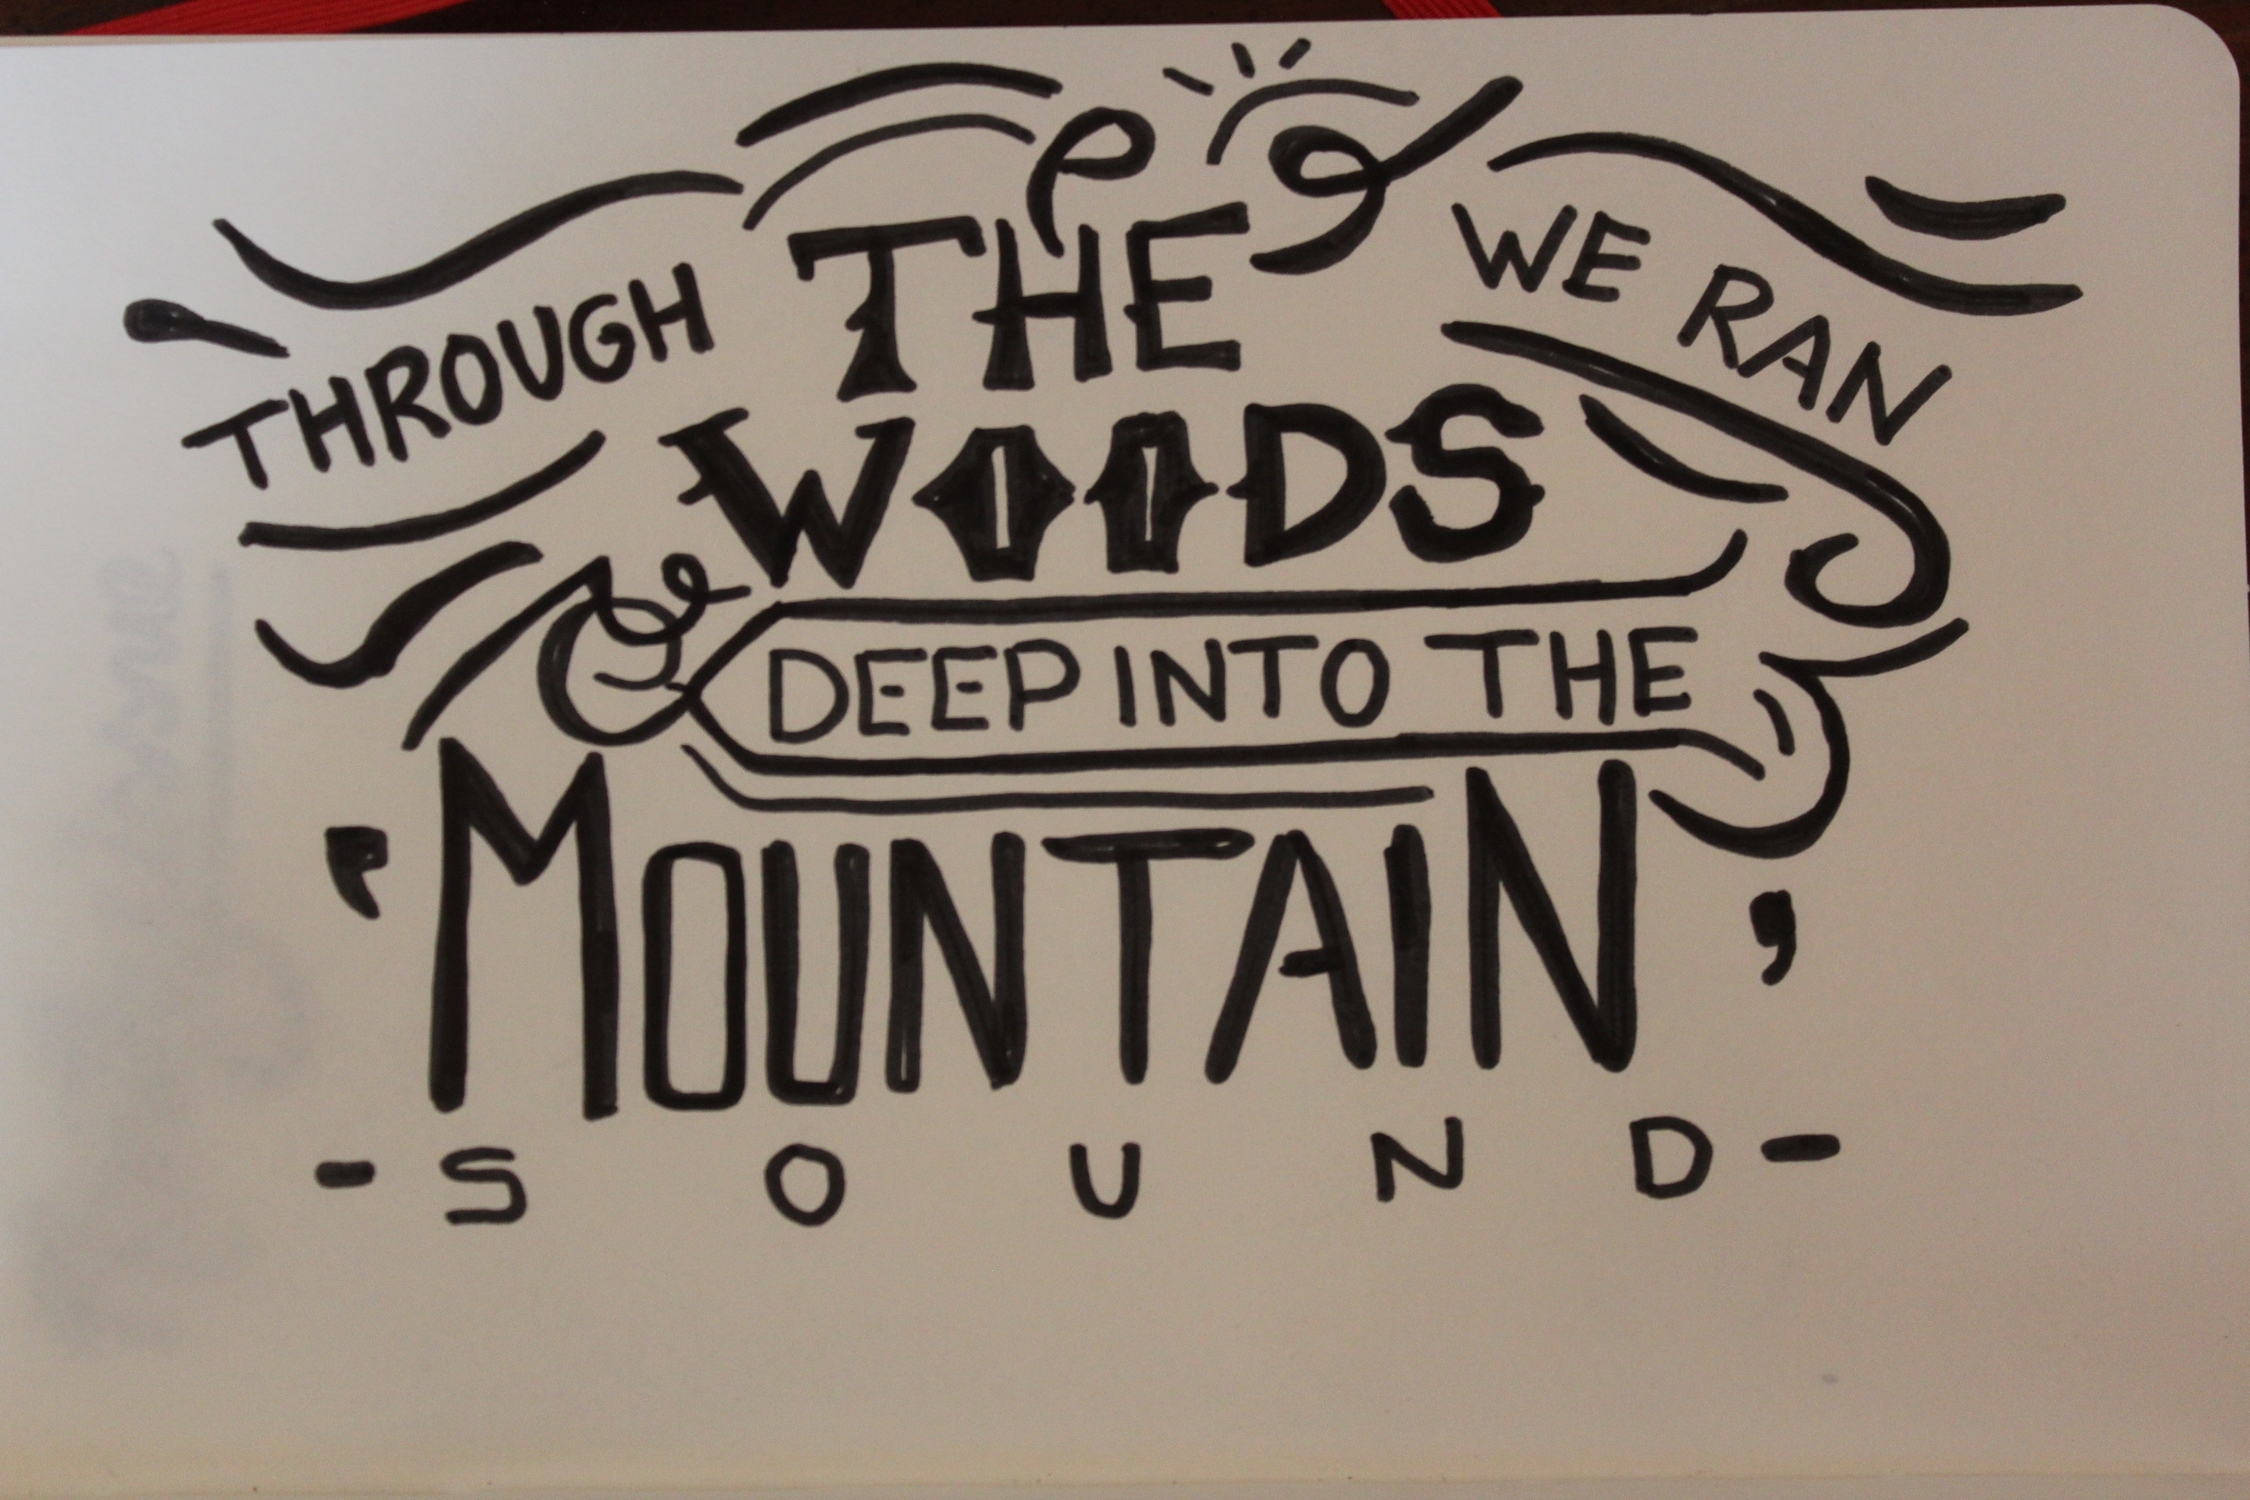 THROUGH THE WE RAN
WOODS
DEEP INTO THE
'MOUNTAIN'
- S O U N D -